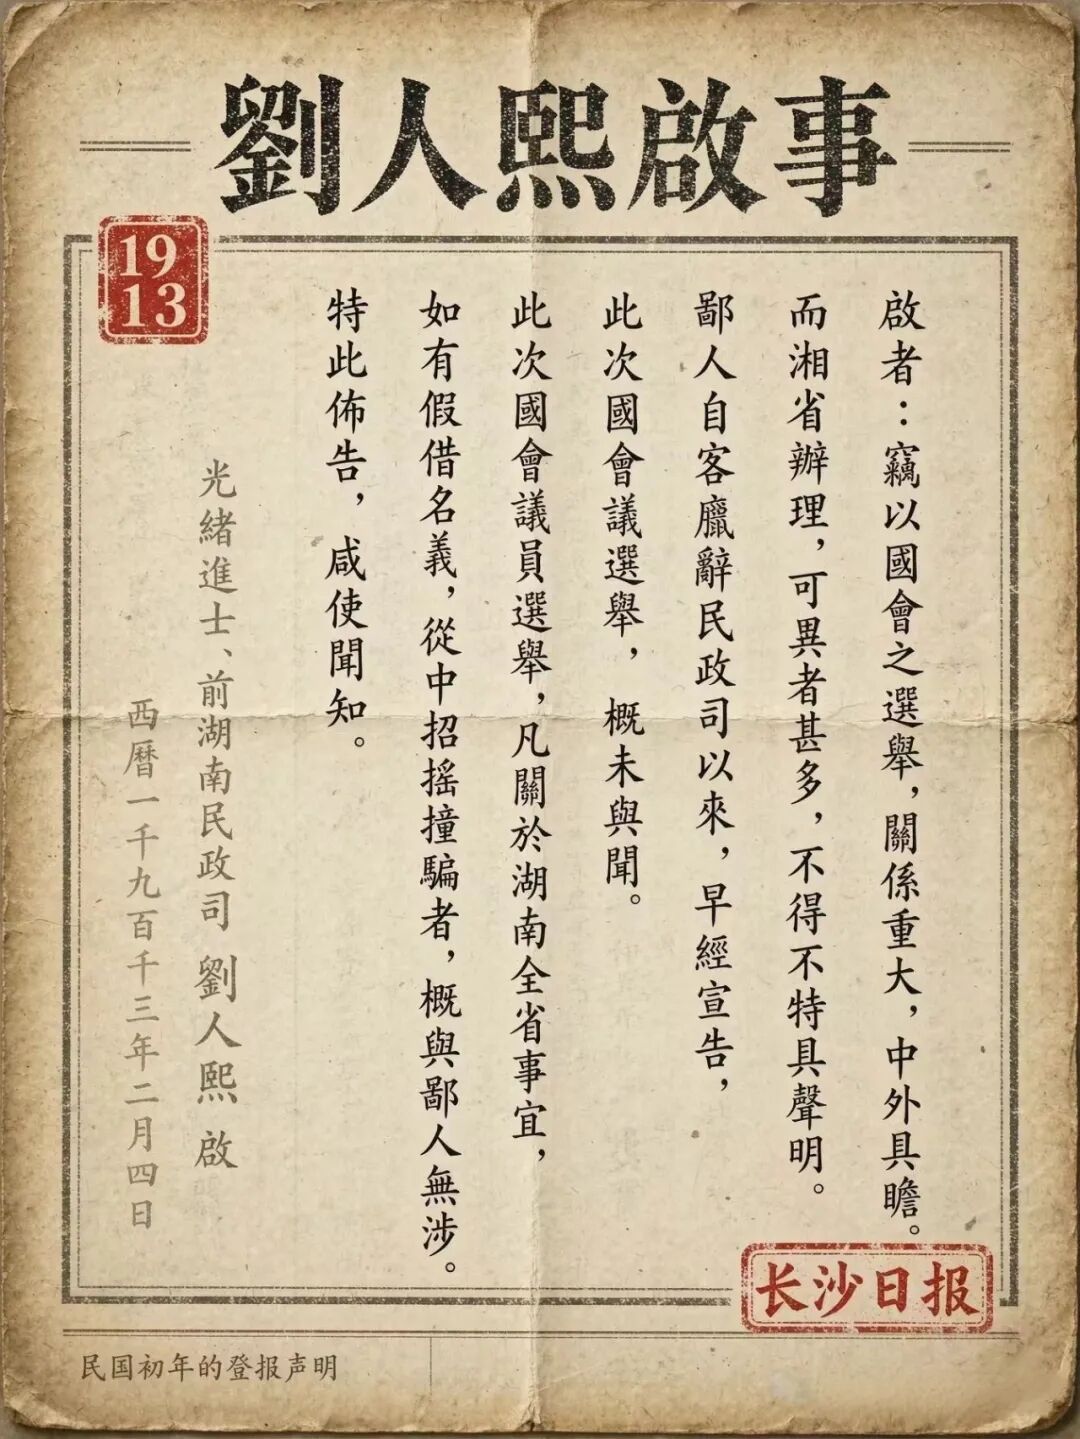 劉人熙啟事
1913
啟者：竊以國會之選舉，關係重大，中外具瞻。
而湘省辦理，可異者甚多，不得不特具聲明。
鄙人自客臘辭民政司以來，早經宣告，
此次國會議選舉，概未與聞。
此次國會議員選舉，凡關於湖南全省事宜，
如有假借名義，從中招搖撞騙者，概與鄙人無涉。
特此佈告，咸使聞知。
光緒進士、前湖南民政司 劉人熙 啟
西曆一千九百千三年二月四日
长沙日报
民国初年的登报声明